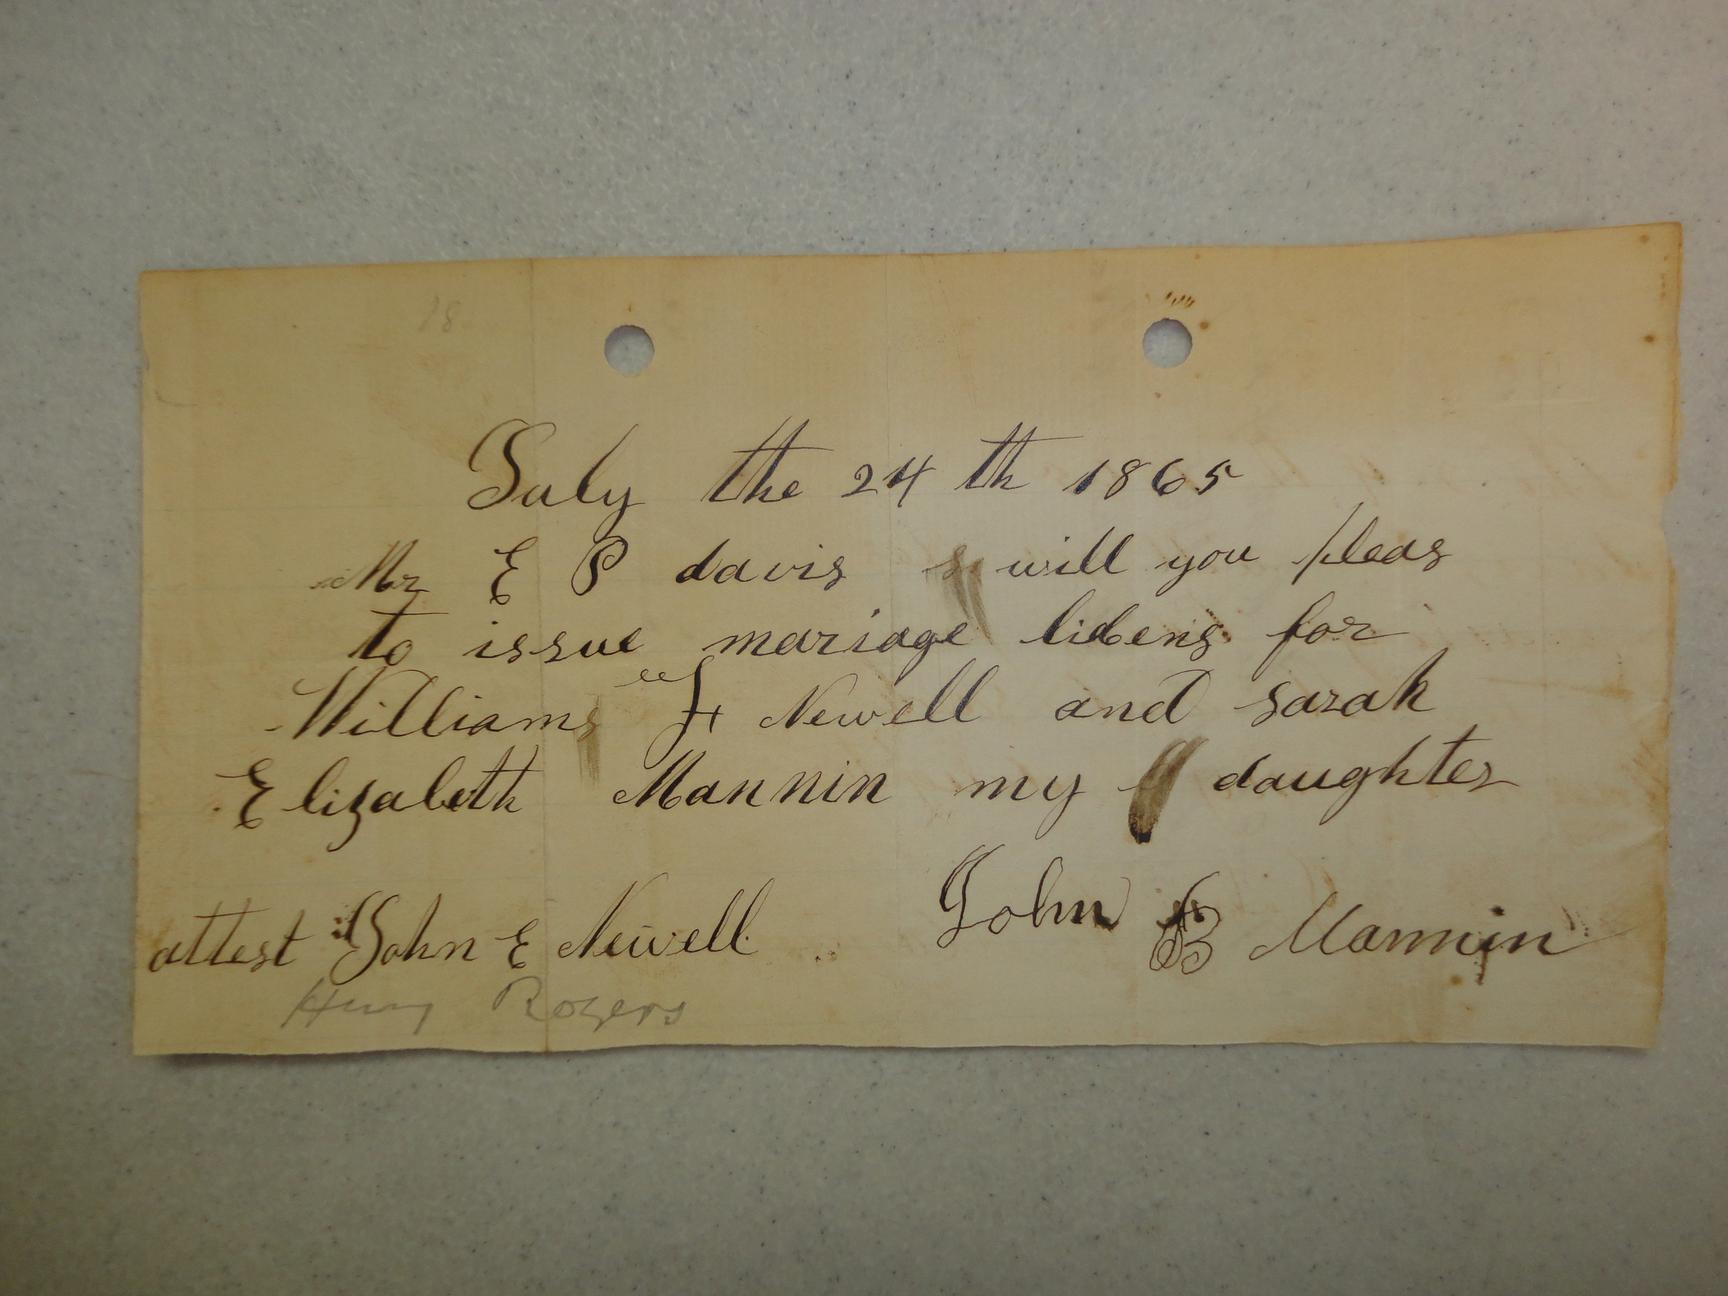 18
July the 24 th 1865
Mr E P davis will you pleas
to issue mariage licens for
William F Newell and sarah
Elizabeth Mannin my daughter
John B Mannin
attest John E Newell
Henry Rogers